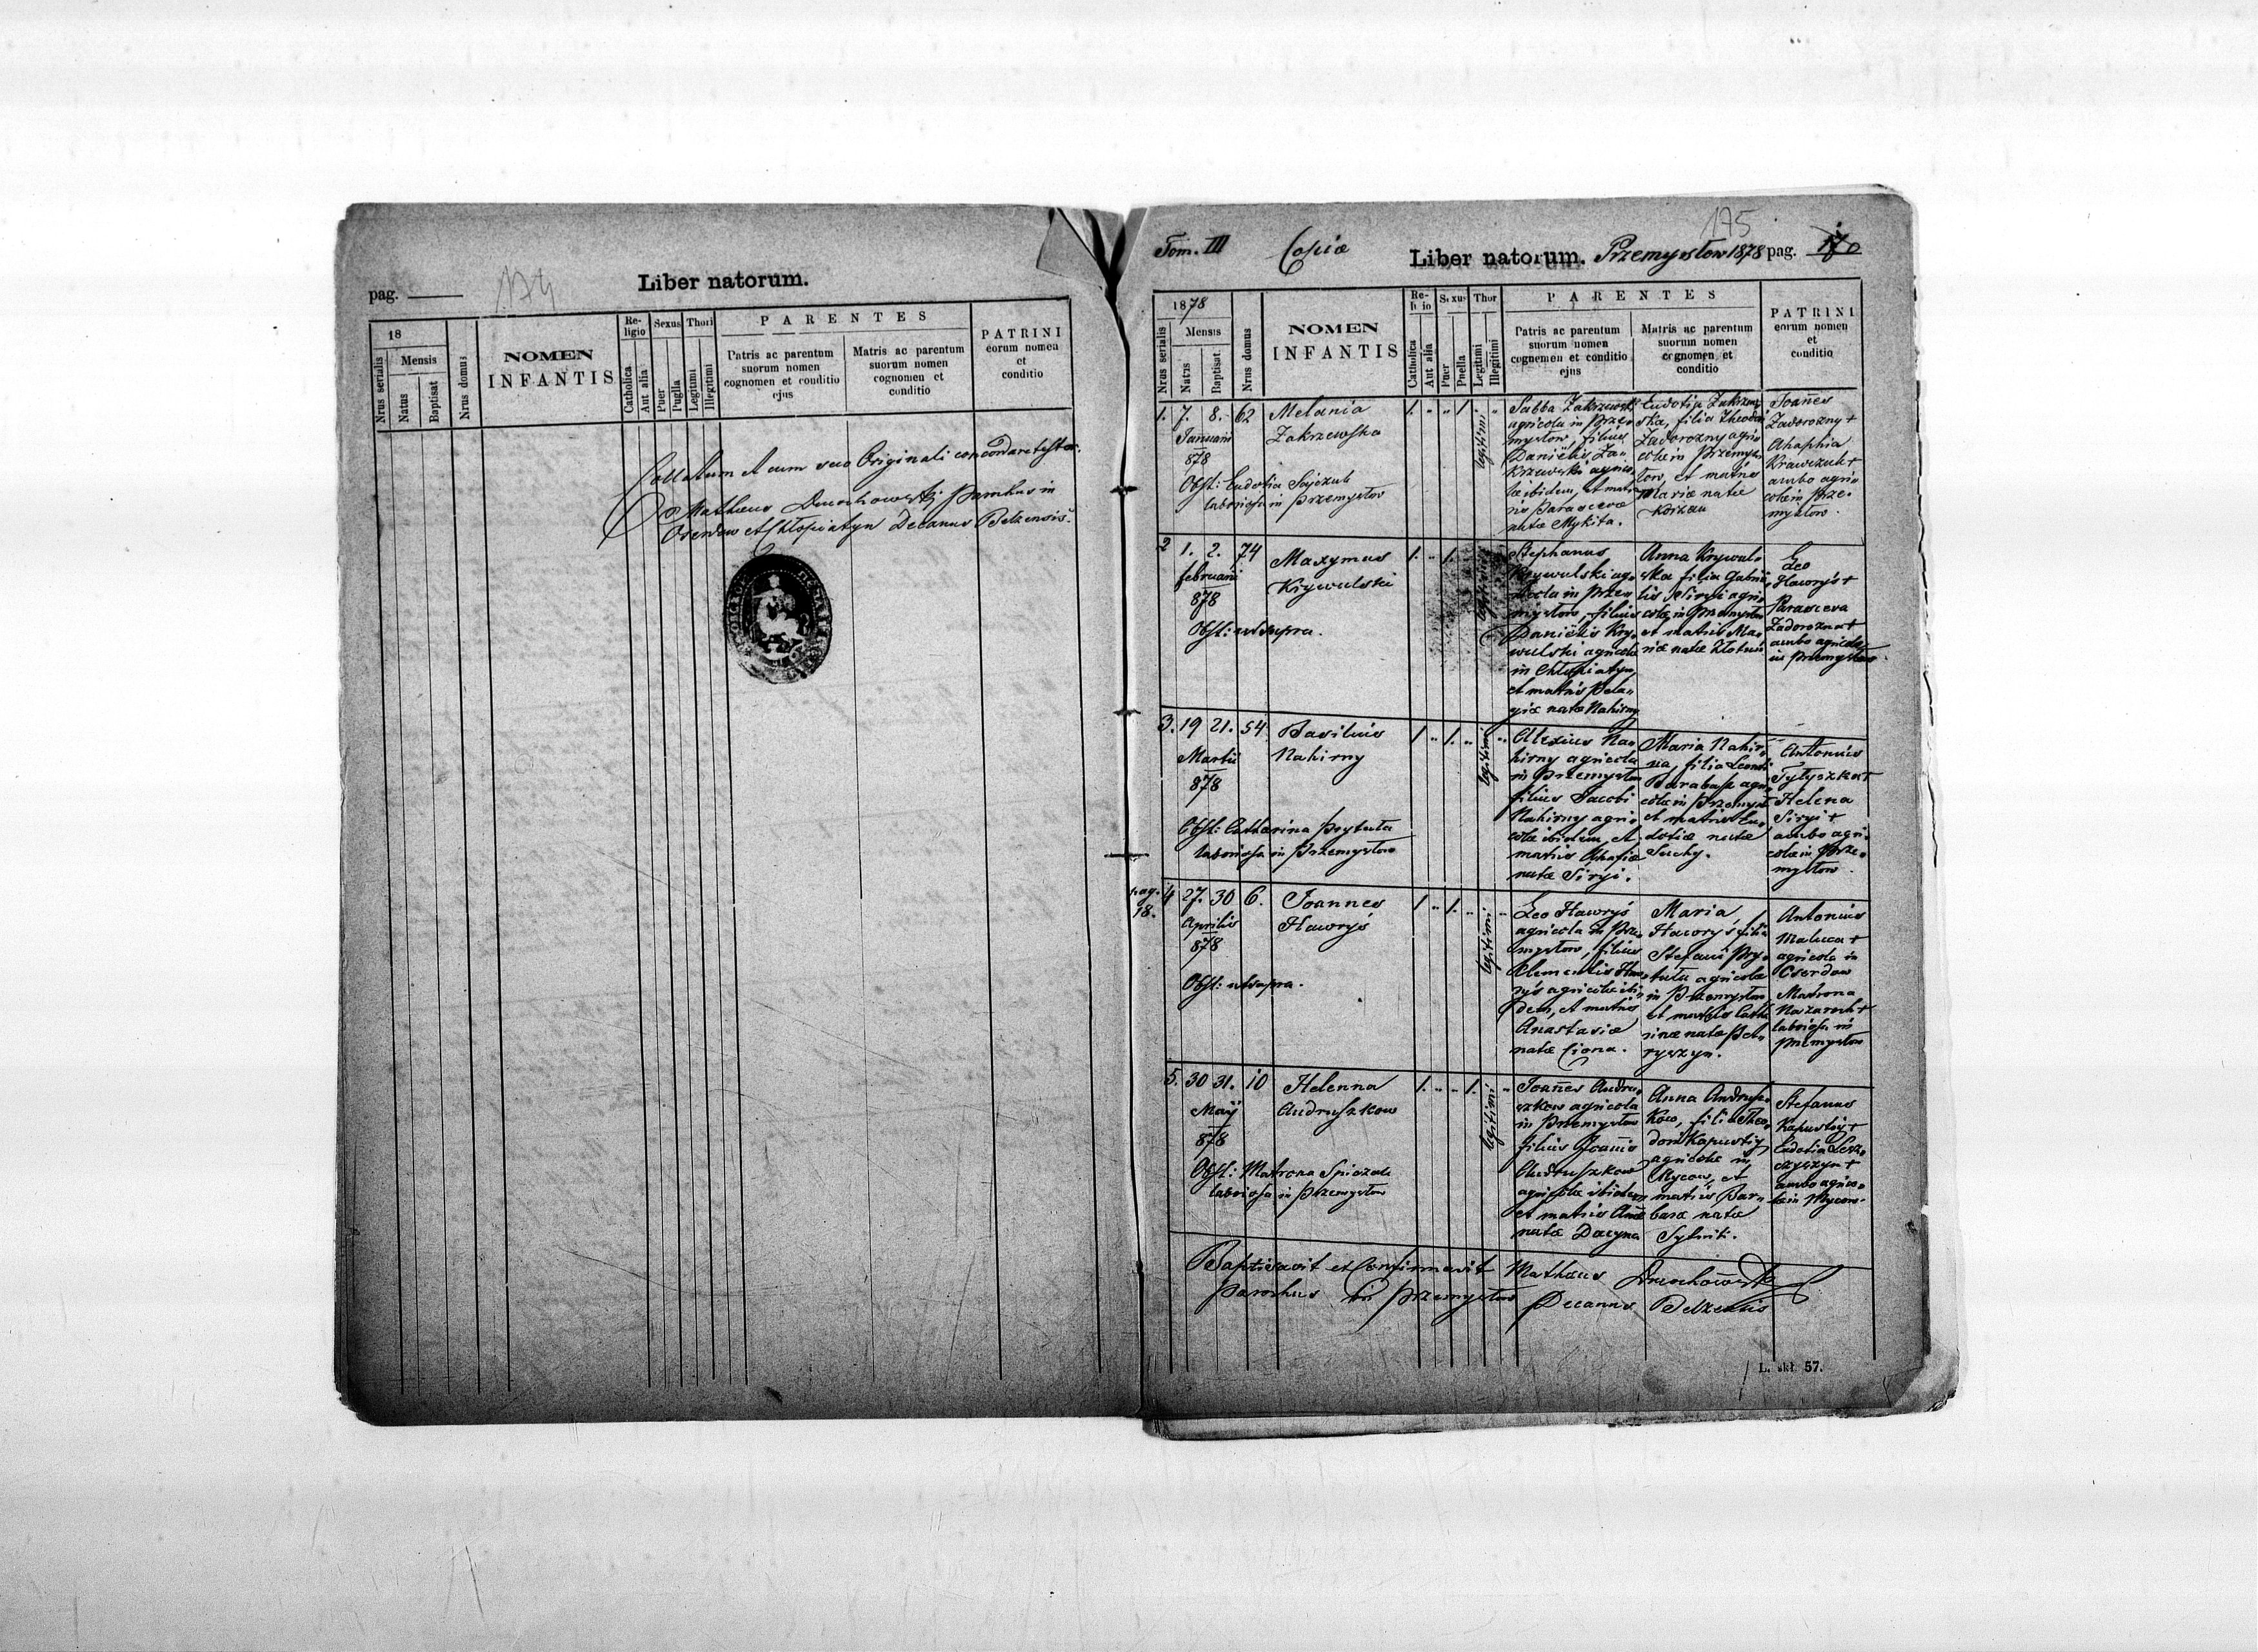 pag.
174
Liber natorum.
18
Nrus serialis
Mensis
Natus
Baptisat
Nrus domus
NOMEN
INFANTIS
Religio
Catholica
Aut alia
Sexus
Puer
Puglia
Thori
Legitimi
Illegitimi
PARENTES
Patris ac parentum
suorum nomen
cognomen et conditio
ejus
Matris ac parentum
suorum nomen
cognomen et
conditio
PATRINI
eorum nomen
et
conditio
Collatum et cum suo Originali concordare testor.
Mathaeus Parochus in
Oserdow et Chłopiatyn Decanus Belzensis.
Tom. III
Copia
Liber natorum. Przemysłow 1878 pag.
175
1878
Nrus serialis
Mensis
Natus
Baptisat.
Nrus domus
NOMEN
INFANTIS
Catholica
Aut alia
Sexus
Puer
Puella
Thor
Legitimi
Illegitimi
PARENTES
Patris ac parentum
suorum nomen
cognomen et conditio
ejus
Matris ac parentum
suorum nomen
cognomen et
conditio
PATRINI
eorum nomen
et
conditio
1. 7. 8. 62
Januarii
878
Melania
Zakrzewska
Obst: Eudotia Sajczuk
laboriosa in Przemysłow
legitimi
Sabba Zakrzewski
agricola in Prze-
mysłow, filius
Daniëlis Za-
krzewski agrico-
lae ibidem, et mat-
ris Parascevae
natae Mykita.
Eudotia Zakrzew-
ska, filia Theodori
Zadorozny agri-
colae in Przemys-
łow, et matris
Mariae natae
Joannes
Zadorozny +
Ahaphia
Krawczuk +
ambo agri-
colae in Prze-
mysłow.
2 1. 2. 74
februarii
878
Maxymus
Krywulski
Obst: ut supra.
Stephanus
Krywulski ag-
ricola in Prze-
mysłow, filius
Daniëlis Kry-
wulski agricolae
in Chłopiatyn,
et matris Pela-
giae natae Nahirny
Anna Krywul-
ska filia Gabrie-
lis Siryi agri-
colae in Przemysłow
et matris Ma-
riae natae
Leo
Hawryś +
Parasceva
Zadorozna +
ambo agricolae
in Przemysłow
3. 19 21. 54
Martii
878
Basilius
Nahirny
Obst: Catharina Prytuła
laboriosa in Przemysłow
legitimi
Alexius Na-
hirny agricola
in Przemysłow
filius Jacobi
Nahirny agri-
colae ibidem, et
matris Ahafiae
natae Siryi.
Maria Nahir-
na, filia Leontii
Barabasz agri-
colae in Przemysł.
et matris Eu-
dotiae natae
Suchy.
Antonius
Tytyszka +
Helena
Siryi +
ambo agri-
colae in Prze-
mysłow.
pag.
18.
4 27. 30 6.
Aprilis
878
Joannes
Hawryś
Obst: ut supra.
legitimi
Leo Hawryś
agricola in Prze-
mysłow, filius
Clementis Haw-
ryś agricolae ibi-
dem, et matris
Anastasiae
natae Ciona.
Maria
Hawryś filia
Stefani Pry-
tuła agricolae
in Przemysłow
et matris Catha-
rinae natae Pet-
ryszyn.
Antonius
Malucca +
agricola in
Oserdow
Matrona
Nazaruk +
laboriosa in
Przemysłow
5. 30 31. 10
Maÿ
878
Helenna
Andruszkow
Obst: Matrona Spiczak
laboriosa in Przemysłow
legitimi
Joannes Andru-
szkow agricola
in Przemysłow
filius Joannis
Andruszkow
agricolae ibidem
et matris Annae
natae Dacyna
Anna Andrusz-
kow, filia Theo-
dori Kapustiy
agricolae in
Mycow, et
matris Bar-
barae natae
Sytnik.
Stefanus
Kapustiy +
Eudotia Lesz-
czyszyn +
ambo agrico-
lae in Mycow.
Baptisavit et Confirmavit Mathaeus
Parochus in Przemysłow Decanus Belzensis
L. skł. 57.